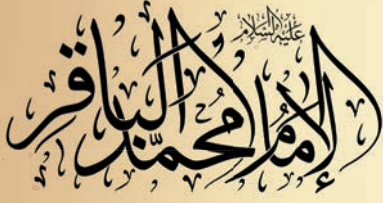 الإمام محمد الباقر
عليه السلام